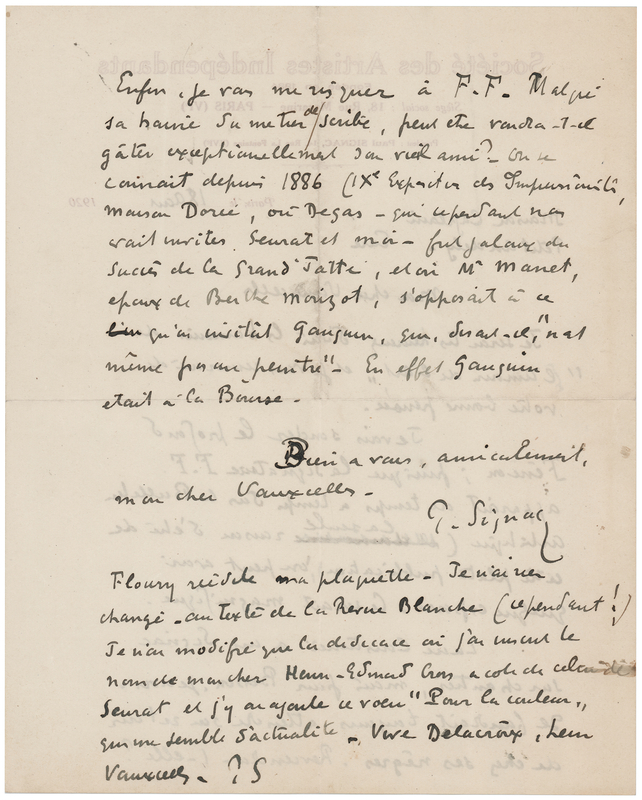 Enfin, je vais me risquer à F.F. Malgré
sa haine du metier de scribe, peut etre voudra-t-il
gâter exceptionellement son vieil ami? On se
connait depuis 1886 (IXe Exposition des Impressionistes,
maison Dorée, où Degas - qui cependant nous
avait invites Seurat et moi - fut jaloux du
succès de la Grand' Jatte, et où Mr Manet,
epoux de Berthe Morizot, s'opposait à ce
qu'on invitât Gauguin, qui, disait-il, "n'est
même pas un peintre" - En effet Gauguin
etait à la Bourse -
Bien a vous, amicalement,
mon cher Vauxcelles -
P. Signac
Floury reédite ma plaquette - Je n'ai rien
changé - au texte de la Revue Blanche (cependant!)
Je n'ai modifié que la dedicace où j'ai inscrit le
nom de mon cher Henri-Edmond Cross a coté de celui de
Seurat et j'y ai ajouté ce voeu "Pour la couleur",
qui me semble d'actualité -, Vive Delacroix, hein
Vauxcelles - P S
Société des Artistes Indépendants
PARIS (Ve)
1920